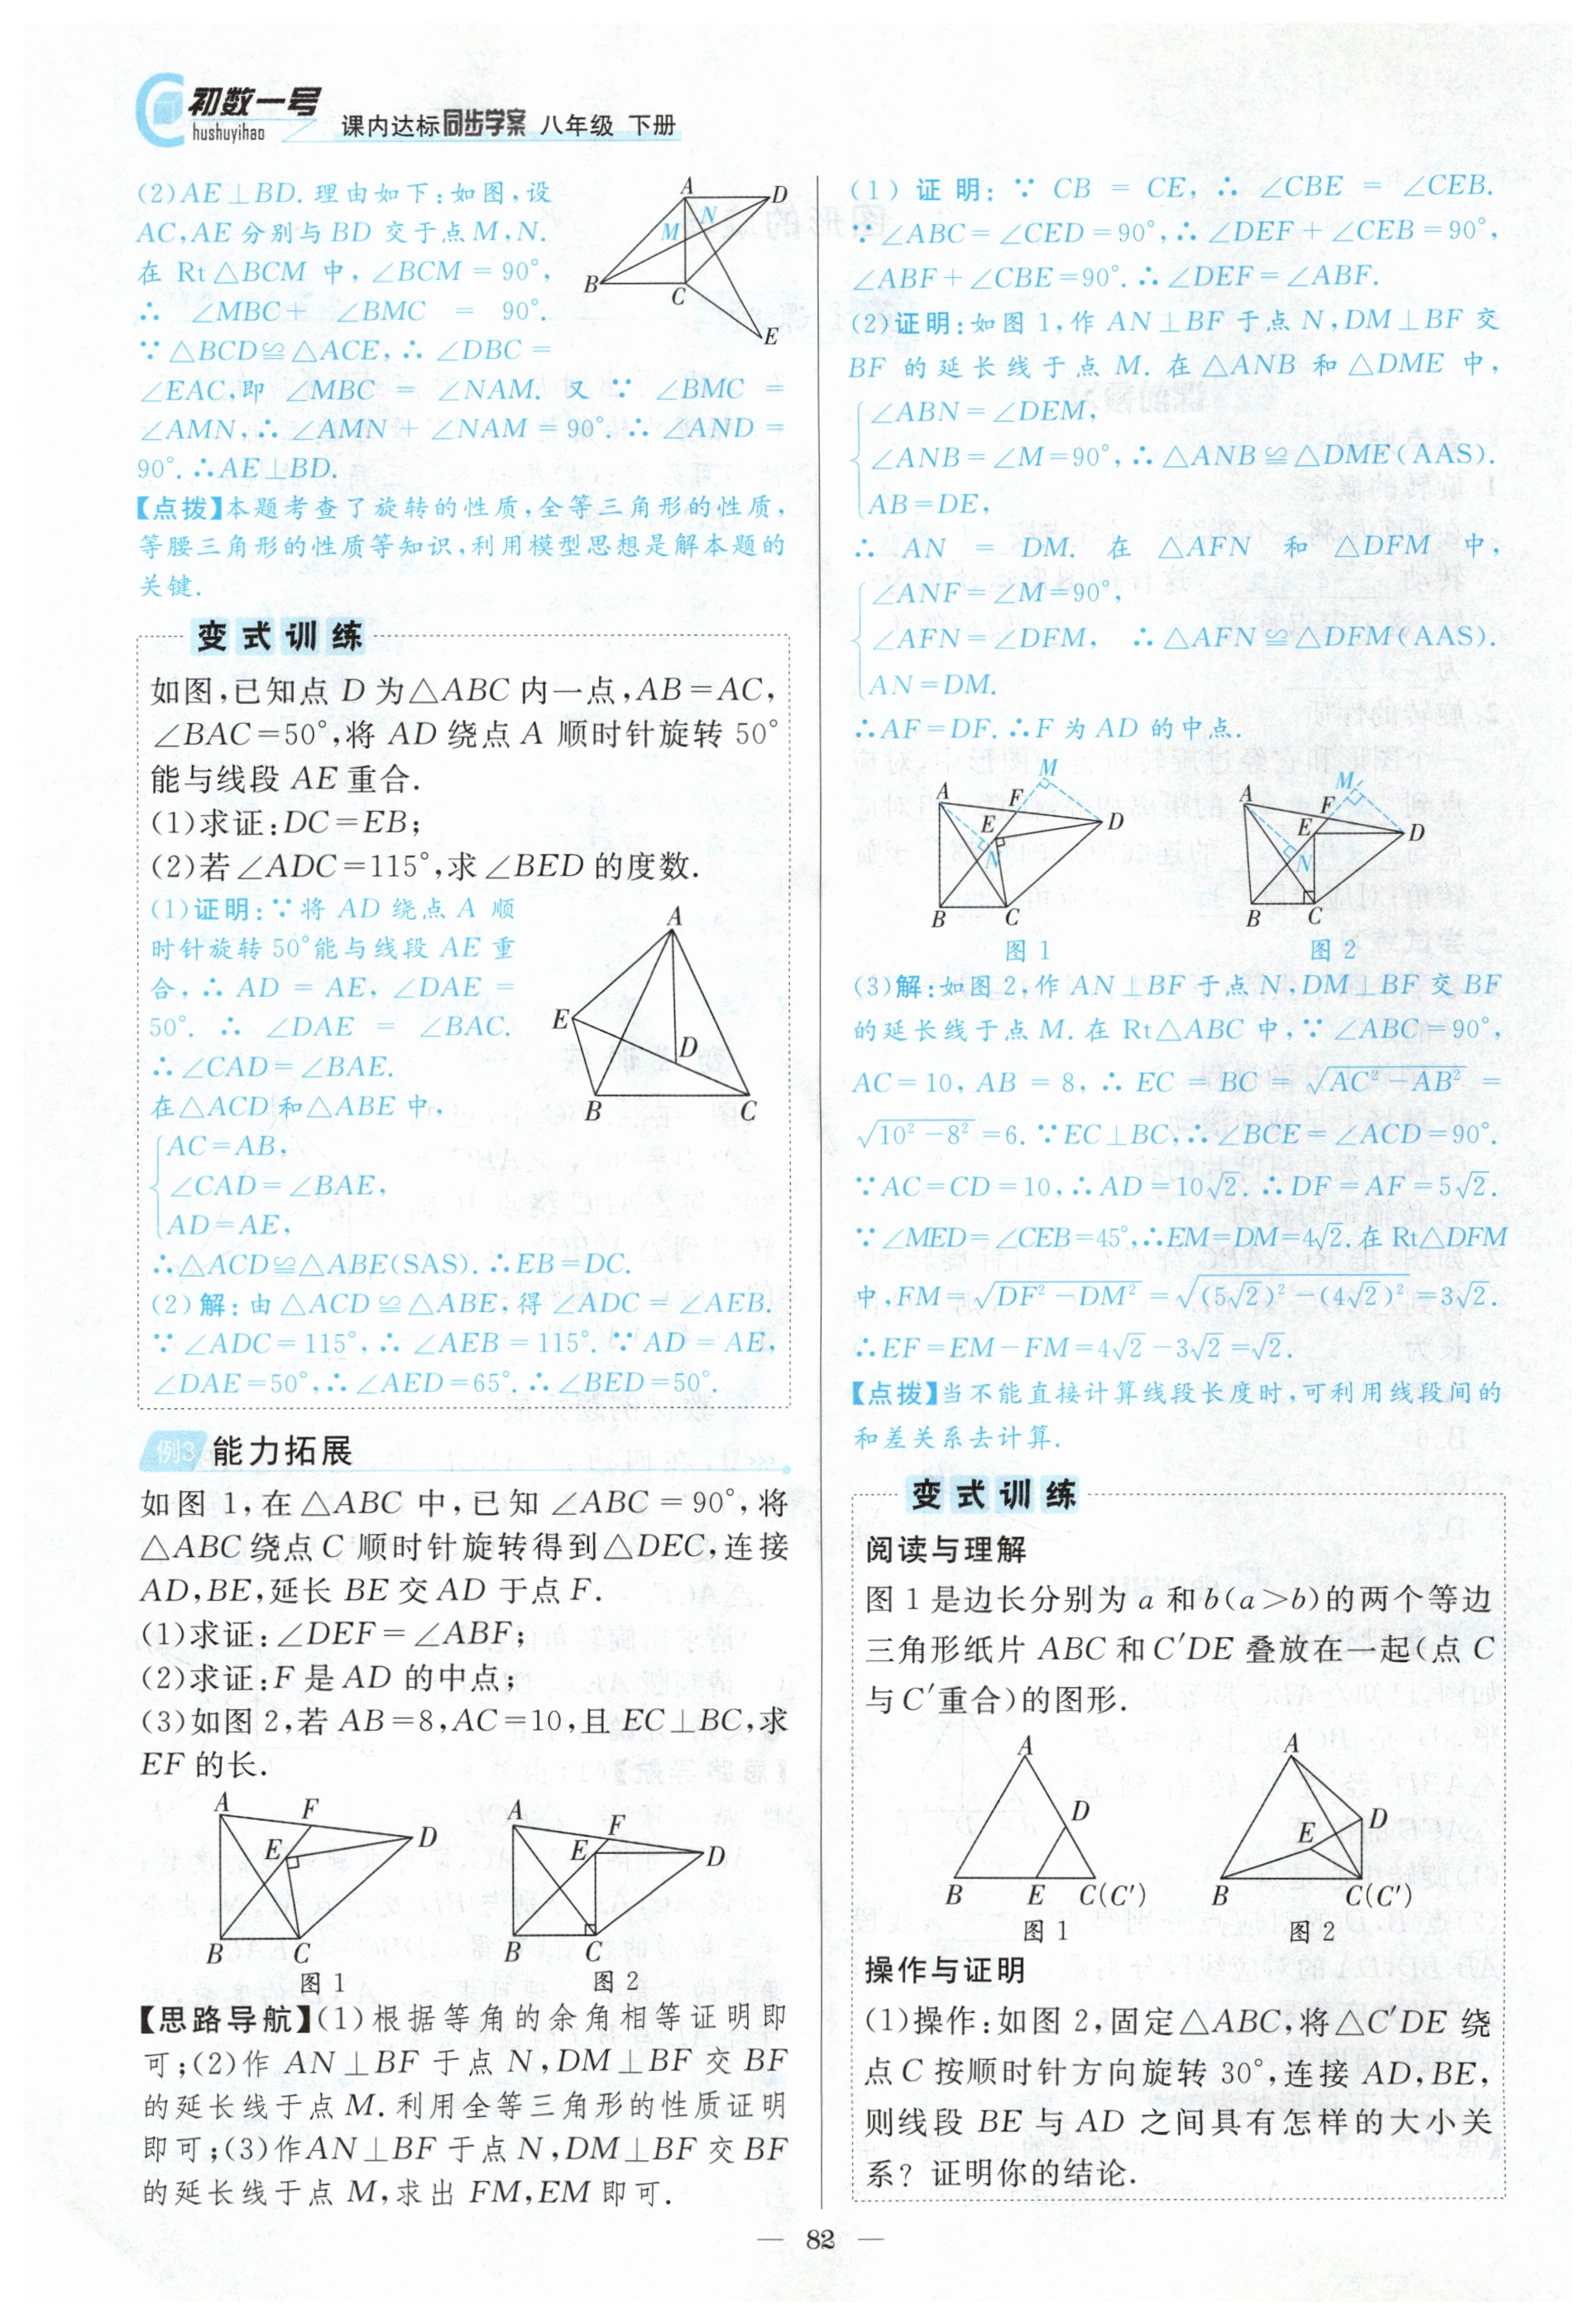 初数一号
hushuyihao
课内达标同步学案 八年级 下册
(2)AE⊥BD.理由如下:如图,设
AC,AE分别与BD交于点M,N.
在Rt△BCM中,∠BCM=90°,
∴ ∠MBC+ ∠BMC = 90°.
∵△BCD≌△ACE,∴∠DBC=
∠EAC,即 ∠MBC = ∠NAM. 又 ∵ ∠BMC =
∠AMN,∴∠AMN+∠NAM=90°.∴∠AND=
90°.∴AE⊥BD.
【点拨】本题考查了旋转的性质,全等三角形的性质,
等腰三角形的性质等知识,利用模型思想是解本题的
关键.
A
D
N
M
B
C
E
变式训练
如图,已知点D为△ABC内一点,AB=AC,
∠BAC=50°,将AD绕点A顺时针旋转50°
能与线段AE重合.
(1)求证:DC=EB;
(2)若∠ADC=115°,求∠BED的度数.
(1)证明:∵将AD绕点A顺
时针旋转50°能与线段AE重
合,∴AD=AE,∠DAE=
50°. ∴ ∠DAE = ∠BAC.
∴∠CAD=∠BAE.
在△ACD和△ABE中,
AC=AB,
∠CAD=∠BAE,
AD=AE,
∴△ACD≌△ABE(SAS).∴EB=DC.
(2)解:由△ACD≌△ABE,得∠ADC=∠AEB.
∵∠ADC=115°,∴∠AEB=115°.∵AD=AE,
∠DAE=50°,∴∠AED=65°.∴∠BED=50°.
A
E
D
B
C
例3 能力拓展
如图1,在△ABC中,已知∠ABC=90°,将
△ABC绕点C顺时针旋转得到△DEC,连接
AD,BE,延长BE交AD于点F.
(1)求证:∠DEF=∠ABF;
(2)求证:F是AD的中点;
(3)如图2,若AB=8,AC=10,且EC⊥BC,求
EF的长.
A F
E D
B C
图1
A F
E D
B C
图2
【思路导航】(1)根据等角的余角相等证明即
可;(2)作AN⊥BF于点N,DM⊥BF交BF
的延长线于点M.利用全等三角形的性质证明
即可;(3)作AN⊥BF于点N,DM⊥BF交BF
的延长线于点M,求出FM,EM即可.
(1)证明:∵ CB = CE,∴ ∠CBE = ∠CEB.
∵∠ABC=∠CED=90°,∴∠DEF+∠CEB=90°,
∠ABF+∠CBE=90°.∴∠DEF=∠ABF.
(2)证明:如图1,作AN⊥BF于点N,DM⊥BF交
BF的延长线于点M.在△ANB和△DME中,
∠ABN=∠DEM,
∠ANB=∠M=90°,∴△ANB≌△DME(AAS).
AB=DE,
∴ AN = DM. 在 △AFN 和 △DFM 中,
∠ANF=∠M=90°,
∠AFN=∠DFM, ∴△AFN≌△DFM(AAS).
AN=DM.
∴AF=DF.∴F为AD的中点.
M
A F
E D
N
B C
图1
M
A F
E D
N
B C
图2
(3)解:如图2,作AN⊥BF于点N,DM⊥BF交BF
的延长线于点M.在Rt△ABC中,∵∠ABC=90°,
AC=10,AB=8,∴EC=BC=√(AC²-AB²)=
√(10²-8²)=6.∵EC⊥BC,∴∠BCE=∠ACD=90°.
∵AC=CD=10,∴AD=10√2.∴DF=AF=5√2.
∵∠MED=∠CEB=45°,∴EM=DM=4√2.在Rt△DFM
中,FM=√(DF²-DM²)=√((5√2)²-(4√2)²)=3√2.
∴EF=EM-FM=4√2-3√2=√2.
【点拨】当不能直接计算线段长度时,可利用线段间的
和差关系去计算.
变式训练
阅读与理解
图1是边长分别为a和b(a>b)的两个等边
三角形纸片ABC和C′DE叠放在一起(点C
与C′重合)的图形.
A
D
B E C(C′)
图1
A
D
E
B C(C′)
图2
操作与证明
(1)操作:如图2,固定△ABC,将△C′DE绕
点C按顺时针方向旋转30°,连接AD,BE,
则线段BE与AD之间具有怎样的大小关
系?证明你的结论.
— 82 —